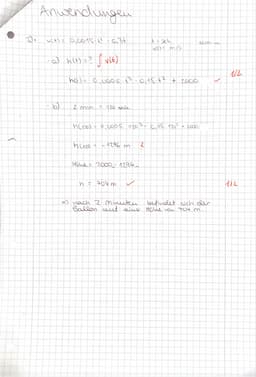 Anwendungen
2) v(t) = 0,0015 t² - 0,3t
a) h(t) = ? ∫ v(t)
h(t) = 0,0005 t³ - 0,15 t² + 2000 ✓ 1/2
b) 2 min = 120 sek
h(120) = 0,0005 · 120³ - 0,15 · 120² + 2000
h(120) = - 1296 m
Höhe = 2000 - 1296
h = 704 m ✓ 1/2
=> nach 2 Minuten befindet sich der
Ballon auf eine Höhe von 704 m.